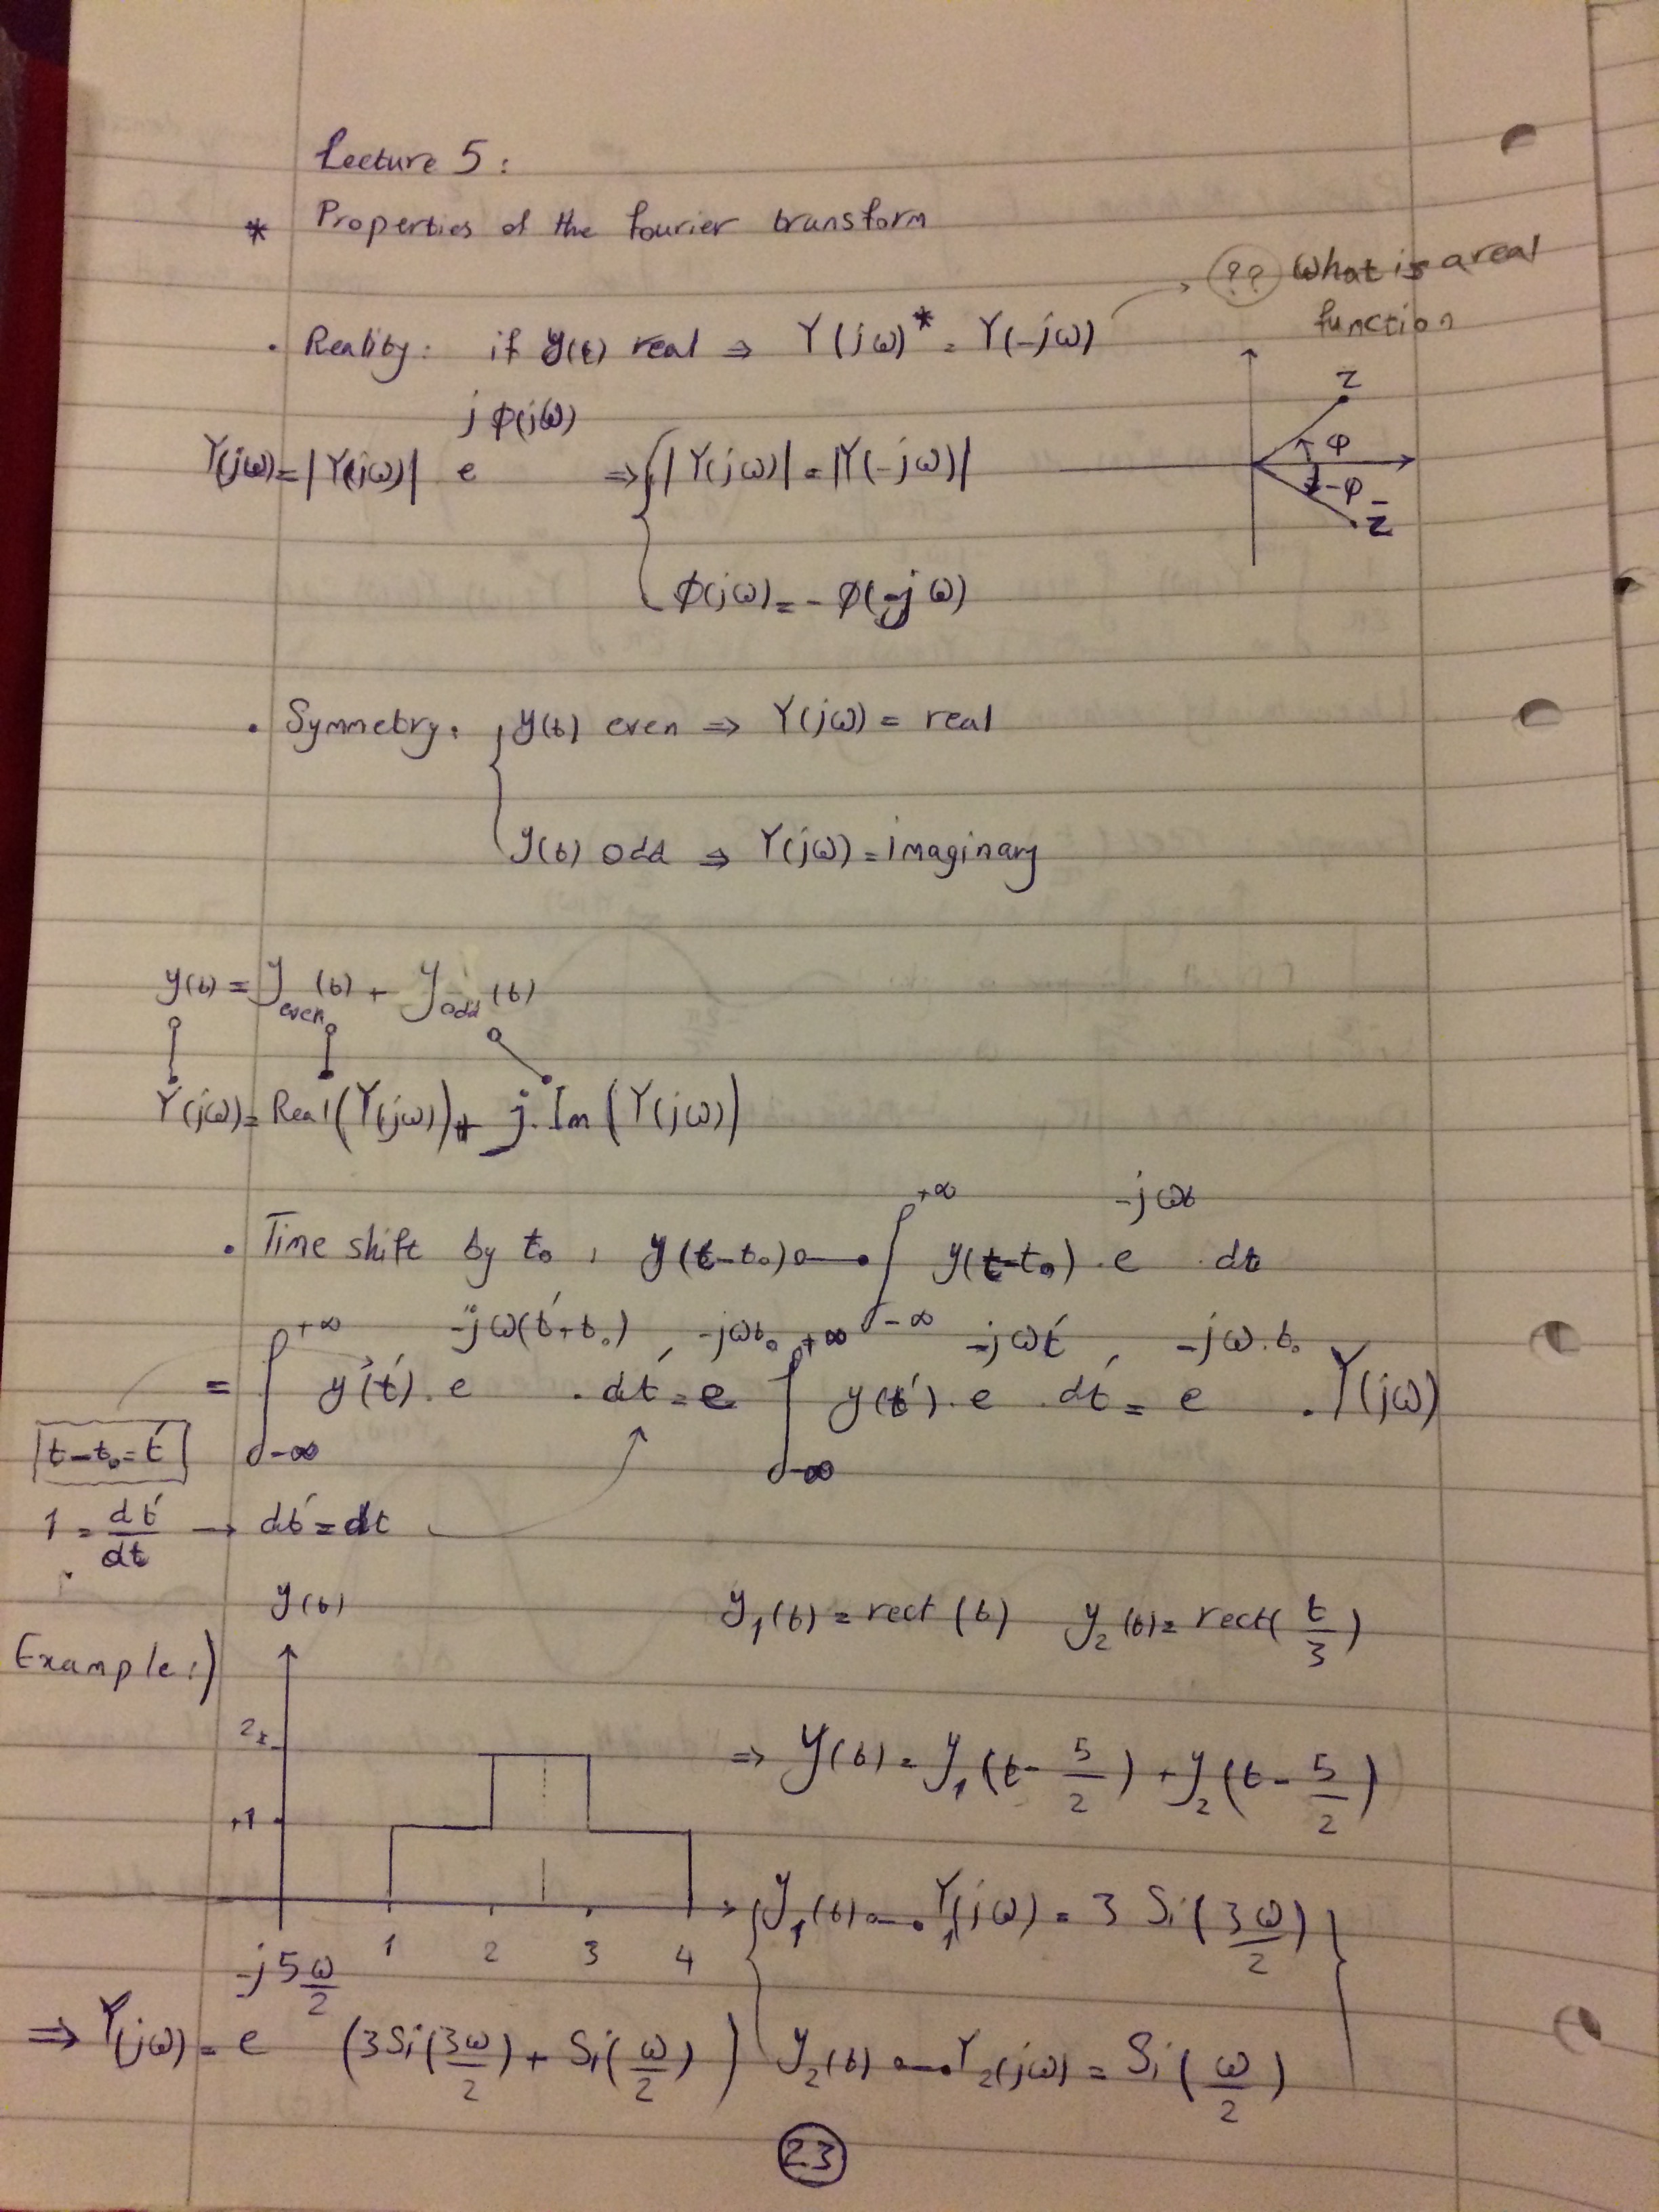 Lecture 5:
* Properties of the fourier transform
?? What is a real
function
• Reality: if y(t) real ⇒ Y(jω)* = Y(-jω)
Y(jω) = |Y(jω)| e^{jϕ(jω)} ⇒ { |Y(jω)| = |Y(-jω)|
ϕ(jω) = -ϕ(-jω)
z
φ
-φ
z̄
• Symmetry: { y(t) even ⇒ Y(jω) = real
y(t) odd ⇒ Y(jω) = imaginary
y(t) = y_even(t) + y_odd(t)
Y(jω) = Real(Y(jω)) + j.Im(Y(jω))
• Time shift by t₀, y(t-t₀) o—• ∫_{-∞}^{+∞} y(t-t₀).e^{-jωt}.dt
= ∫_{-∞}^{+∞} y(t').e^{-jω(t'+t₀)}.dt' = e^{-jωt₀} ∫_{-∞}^{+∞} y(t').e^{-jωt'}.dt' = e^{-jω.t₀}.Y(jω)
t-t₀=t'
1 = dt'/dt → dt'=dt
y(t)
y₁(t) = rect(t) y₂(t) = rect(t/3)
Example:)
2
+1
1 2 3 4
⇒ y(t) = y₁(t-5/2) + y₂(t-5/2)
{ y₁(t) o—• Y₁(jω) = 3 Si(3ω/2) }
y₂(t) o—• Y₂(jω) = Si(ω/2)
⇒ Y(jω) = e^{-j5ω/2} (3Si(3ω/2) + Si(ω/2))
23